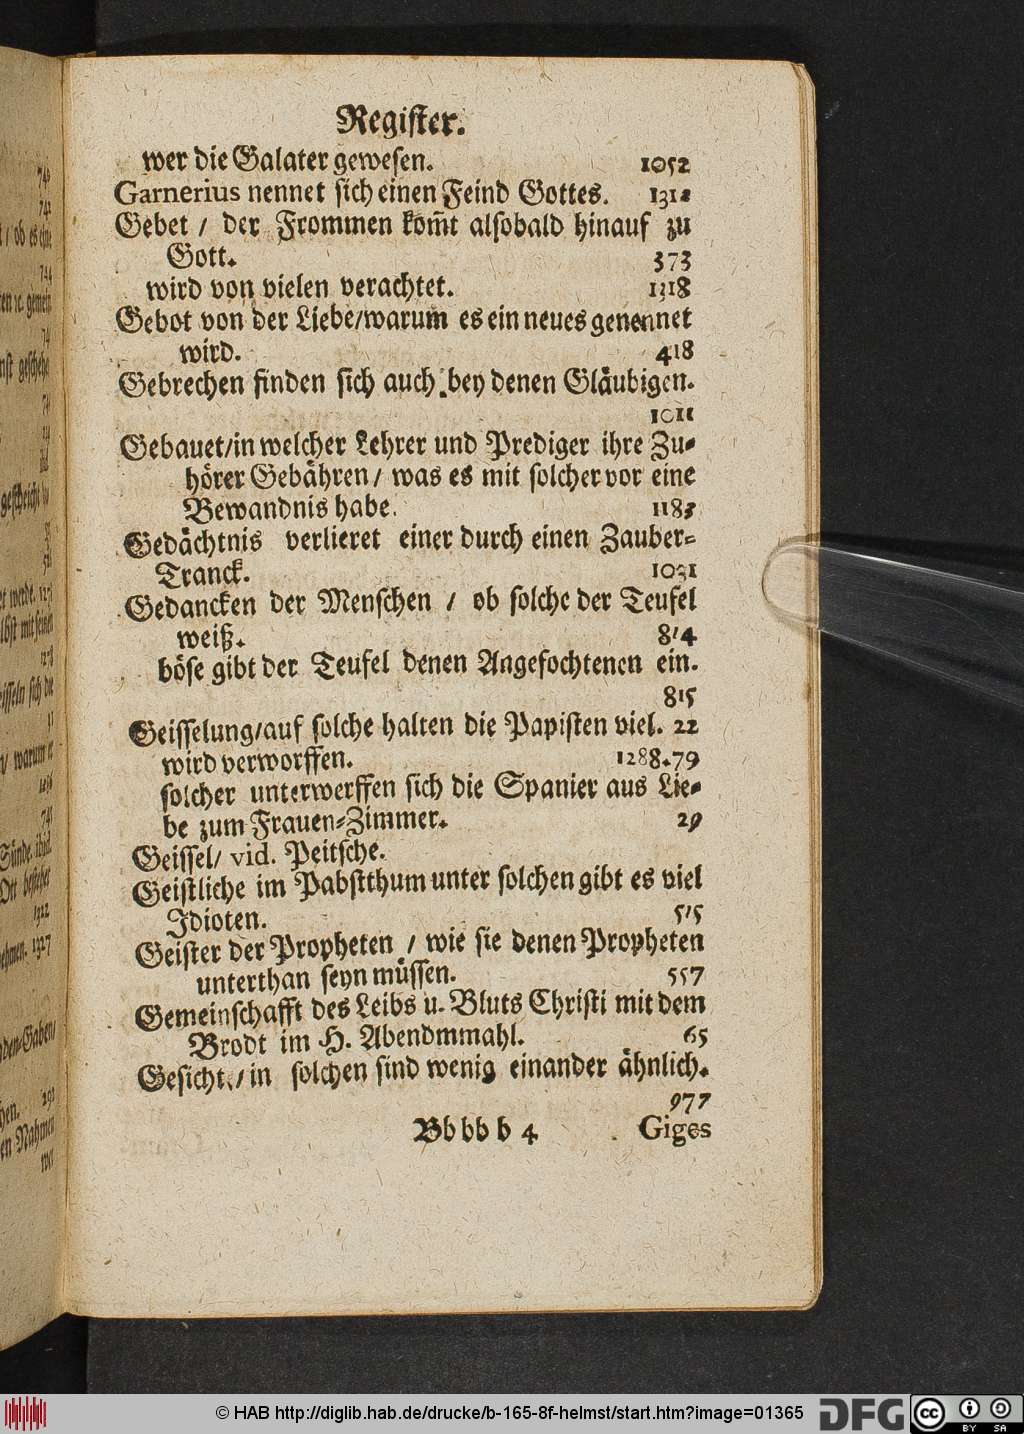 Register.
wer die Galater gewesen. 1052
Garnerius nennet sich einen Feind Gottes.
Gebet / der Frommen kom̃t alsobald hinauf zu
Gott. 373
wird von vielen verachtet. 1318
Gebot von der Liebe/warum es ein neues genennet
wird. 418
Gebrechen finden sich auch bey denen Gläubigen.
1011
Gebauet/in welcher Lehrer und Prediger ihre Zu-
hörer Gebähren/ was es mit solcher vor eine
Bewandnis habe. 1183
Gedächtnis verlieret einer durch einen Zauber-
Tranck. 1031
Gedancken der Menschen / ob solche der Teufel
weiß. 814
böse gibt der Teufel denen Angefochtenen ein.
815
Geisselung/auf solche halten die Papisten viel. 22
wird verworffen. 1288.79
solcher unterwerffen sich die Spanier aus Lie-
be zum Frauen-Zimmer. 29
Geissel/ vid. Peitsche.
Geistliche im Pabstthum unter solchen gibt es viel
Idioten. 515
Geister der Propheten / wie sie denen Propheten
unterthan seyn müssen. 557
Gemeinschafft des Leibs u. Bluts Christi mit dem
Brodt im H. Abendmmahl. 65
Gesicht/in solchen sind wenig einander ähnlich.
977
Bb bb b 4 Giges
© HAB http://diglib.hab.de/drucke/b-165-8f-helmst/start.htm?image=01365
DFG
cc
BY SA